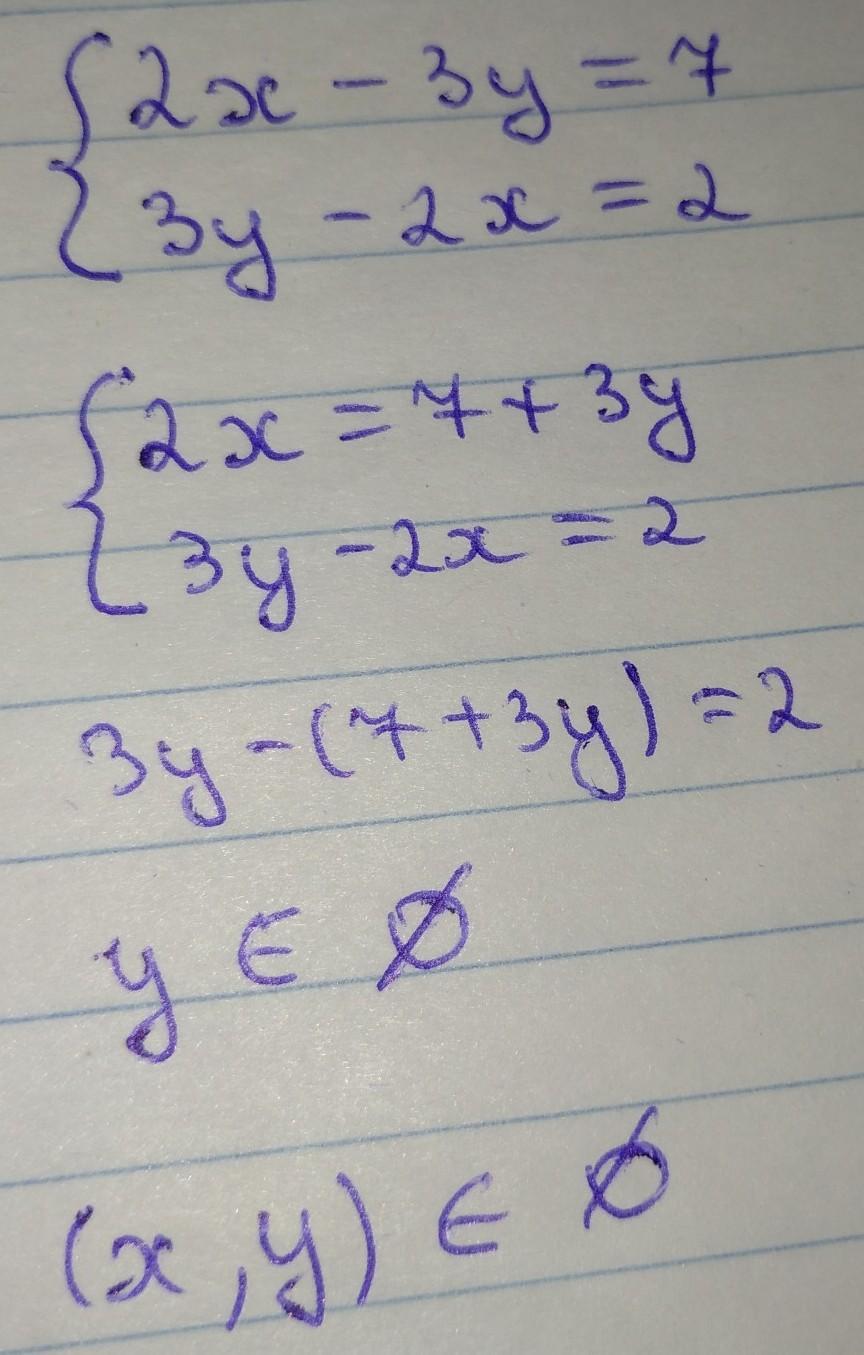 2x - 3y = 7
3y - 2x = 2
2x = 7 + 3y
3y - 2x = 2
3y - (7 + 3y) = 2
y ∈ ∅
(x, y) ∈ ∅